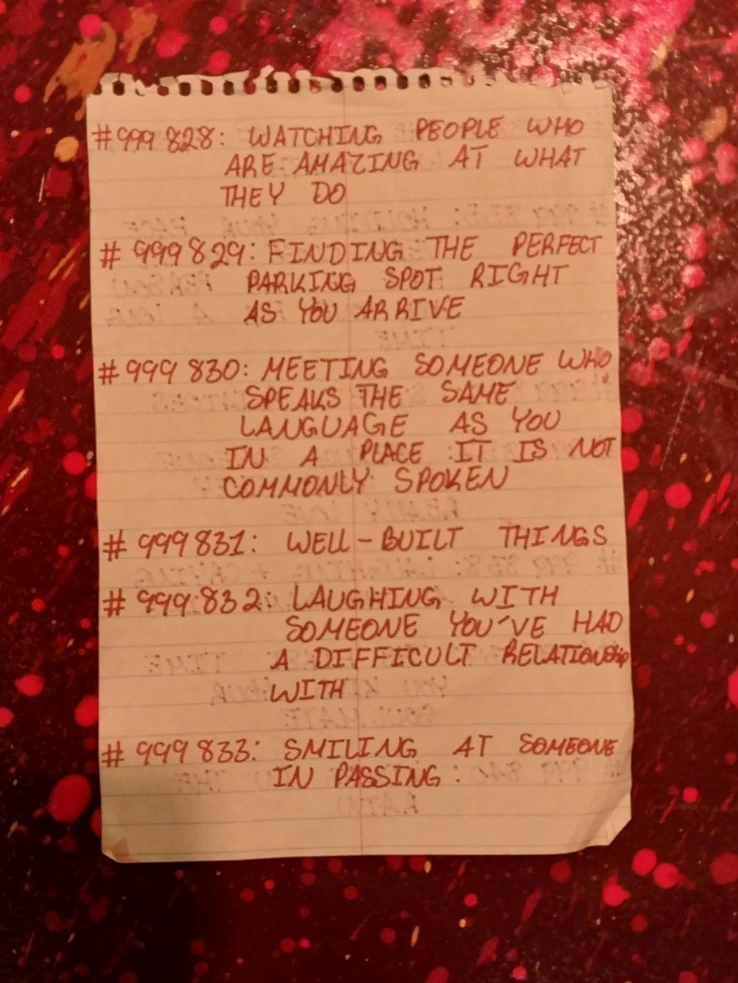 #999828: WATCHING PEOPLE WHO
ARE AMAZING AT WHAT
THEY DO
#999829: FINDING THE PERFECT
PARKING SPOT RIGHT
AS YOU ARRIVE
#999830: MEETING SOMEONE WHO
SPEAKS THE SAME
LANGUAGE AS YOU
IN A PLACE IT IS NOT
COMMONLY SPOKEN
#999831: WELL-BUILT THINGS
#999832: LAUGHING WITH
SOMEONE YOU'VE HAD
A DIFFICULT RELATIONSHIP
WITH
#999833: SMILING AT SOMEONE
IN PASSING